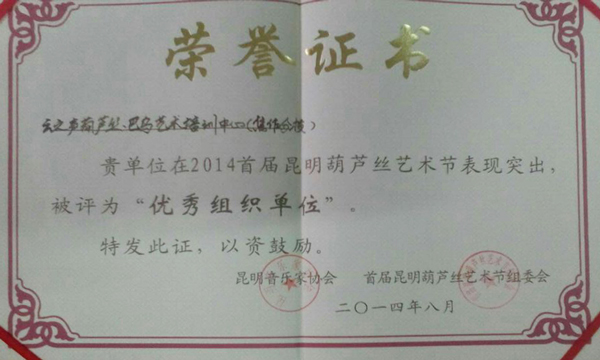 荣誉证书
云之声葫芦丝·巴乌艺术培训中心(焦作分校)
贵单位在2014首届昆明葫芦丝艺术节表现突出，
被评为“优秀组织单位”。
特发此证，以资鼓励。
昆明音乐家协会 首届昆明葫芦丝艺术节组委会
二〇一四年八月